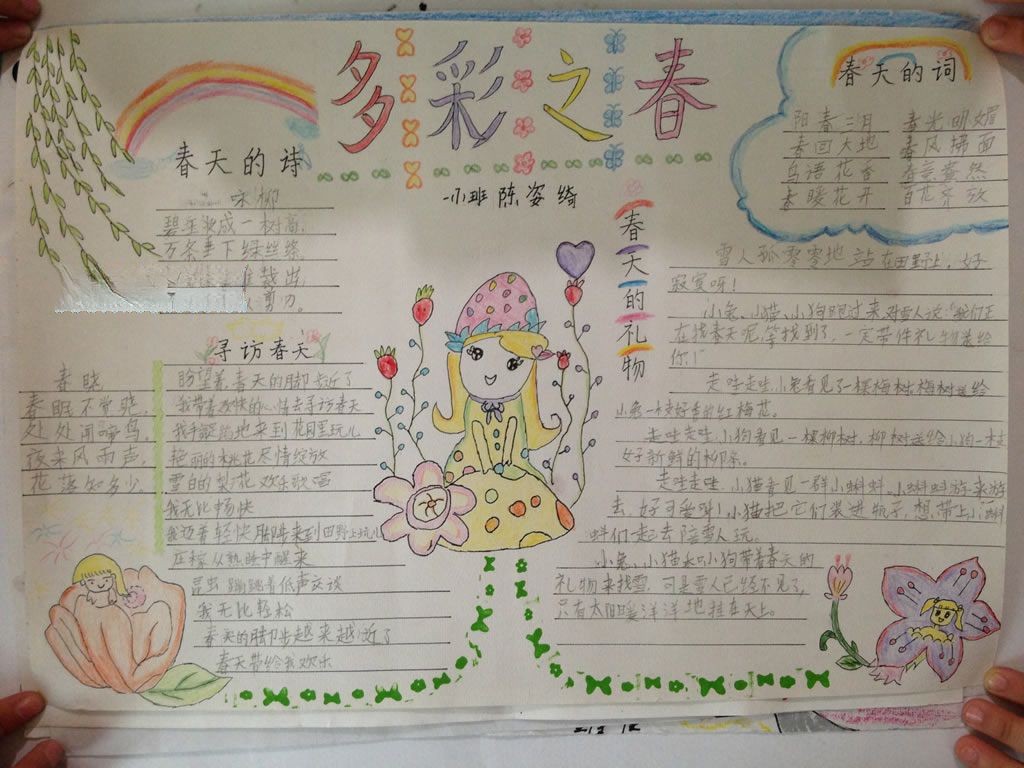 多彩之春
小班 陈姿绮
春天的诗
咏柳
碧玉妆成一树高,
万条垂下绿丝绦,
裁出,
剪刀。
春晓
春眠不觉晓,
处处闻啼鸟,
夜来风雨声,
花落知多少。
寻访春天
盼望着,春天的脚步近了
我带着欢快的心情去寻访春天
我手舞足蹈地来到花园里玩儿
艳丽的桃花尽情绽放
雪白的梨花欢乐歌唱
我无比畅快
我迈着轻快脚步来到田野上玩儿
庄稼从熟睡中醒来
昆虫蹦跳着低声交谈
我无比轻松
春天的脚步越来越近了
春天带给我欢乐
春天的词
阳春三月 春光明媚
春回大地 春风拂面
鸟语花香 春意盎然
春暖花开 百花齐放
春天的礼物
雪人孤零零地站在田野上,好
寂寞呀!
小兔、小猫、小狗跑过来对雪人说:"我们正
在找春天呢,等找到了,一定带件礼物送给
你!"
走哇走哇,小兔看见了一棵梅树,梅树送给
小兔一支好香的红梅花。
走哇走哇,小狗看见一棵柳树,柳树送给小狗一支
好新鲜的柳条。
走哇走哇,小猫看见一群小蝌蚪,小蝌蚪游来游
去,好可爱呀!小猫把它们装进瓶子,想带上小蝌
蚪们一起去陪雪人玩。
小兔、小猫和小狗带着春天的
礼物来找雪,可是雪人已经不见了,
只有太阳暖洋洋地挂在天上。